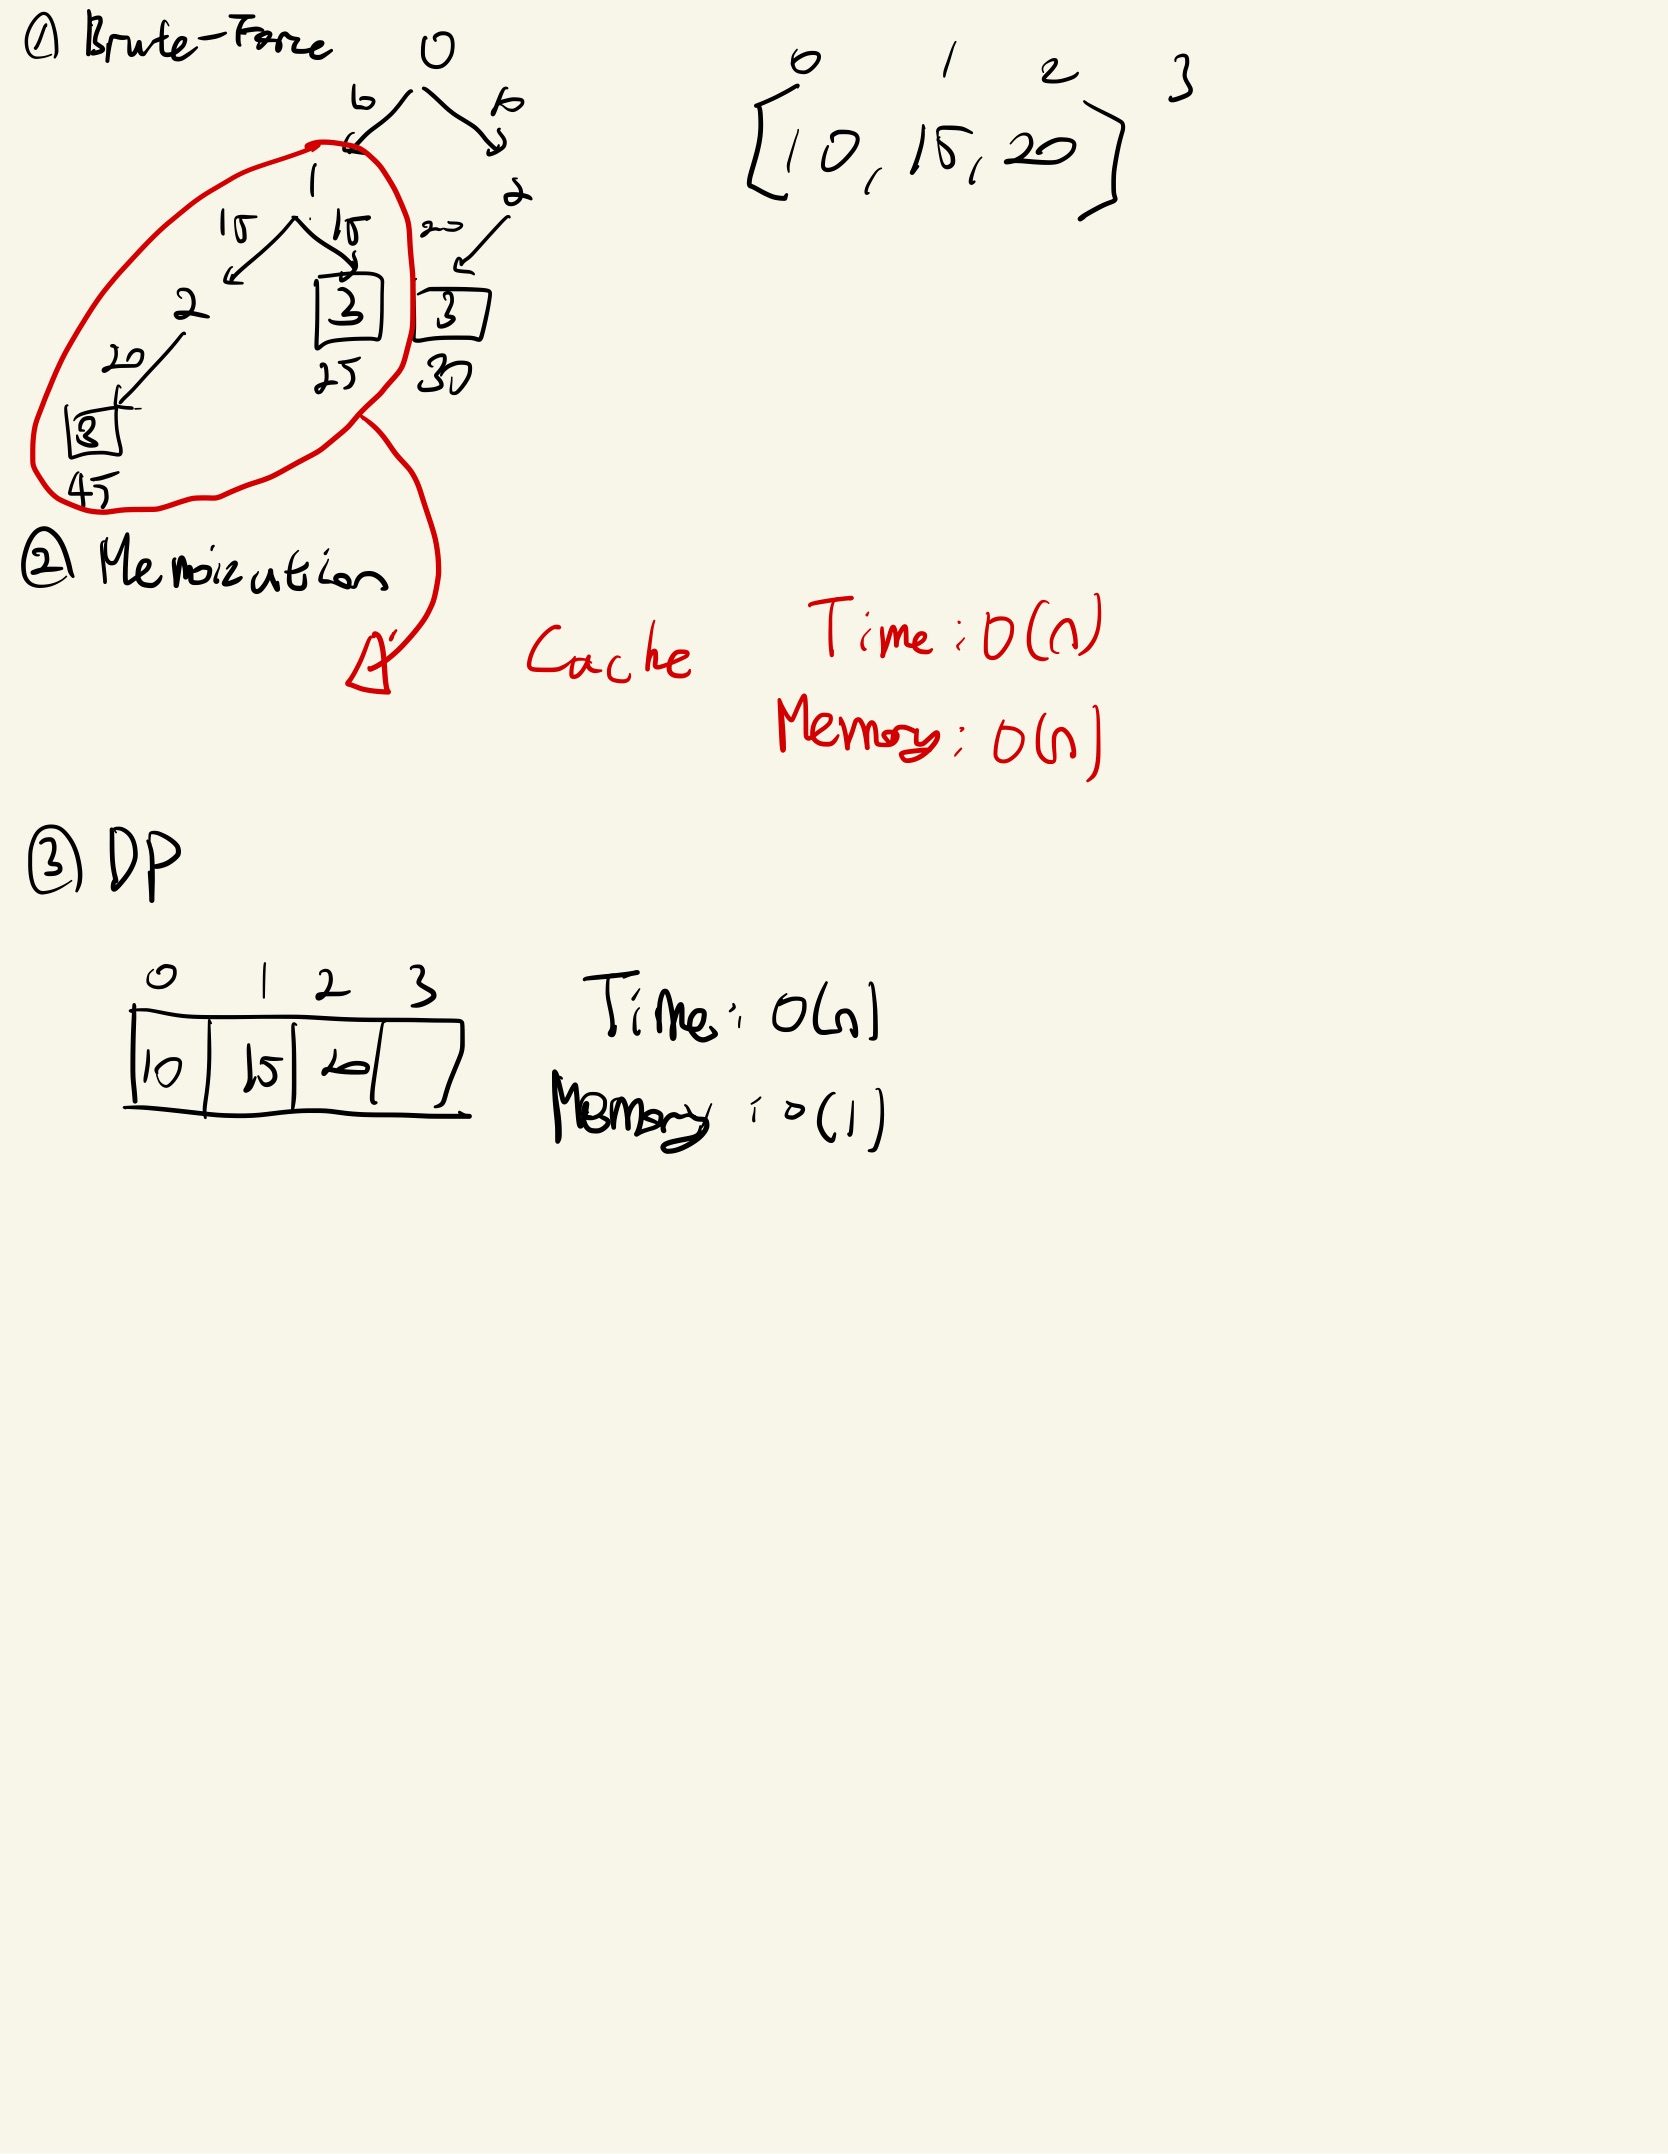 ① Brute-Force
0
10 10
1 2
15 15 20
2 3 3
20 25 30
3
45
0 1 2 3
[10, 15, 20]
② Memoization
Cache
Time: O(n)
Memory: O(n)
③ DP
0 1 2 3
10 15 20
Time: O(n)
Memory: O(1)